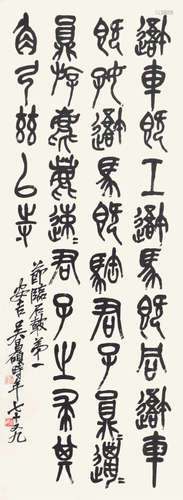 避車既工避馬既同避車
既好避馬既駓君子員邋
員斿麀鹿速君子之求其
角弓茲以寺
節臨石鼓第一
安吉吳昌碩時年七十九